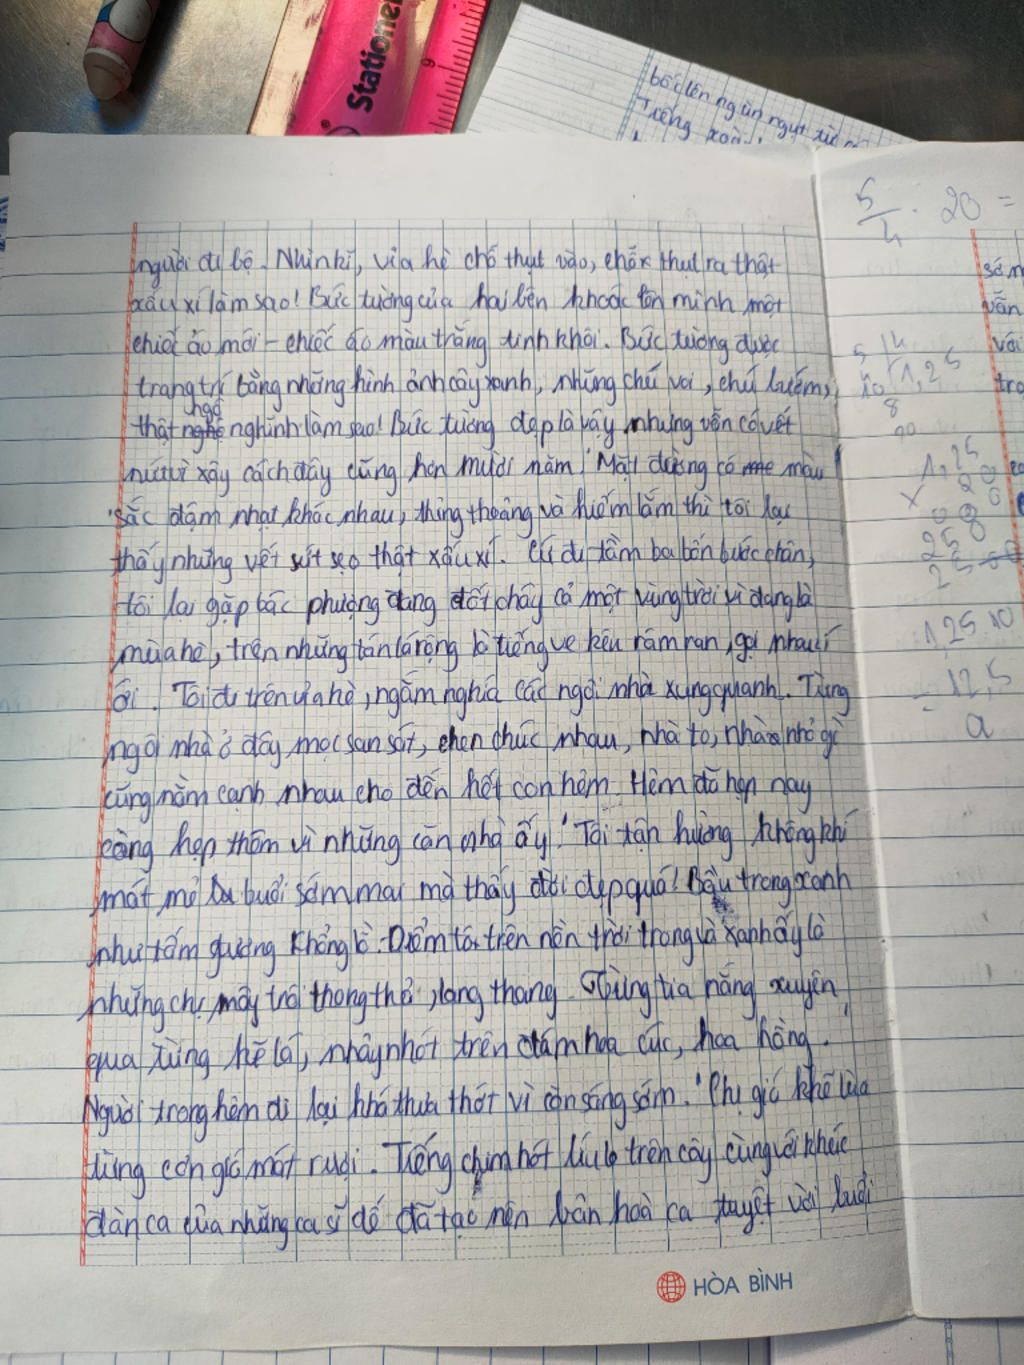 Stationer
9
bốc lên ngùn ngụt
Tiếng
người đi bộ. Nhìn kĩ, vỉa hè chỗ thụt vào, chỗ thụt ra thật
xấu xí làm sao! Bức tường của hai bên khoác lên mình một
chiếc áo mới - chiếc áo màu trắng tinh khôi. Bức tường được
trang trí bằng những hình ảnh cây xanh, những chú voi, chú bướm,
ngộ
thật nghê nghĩnh làm sao! Bức tường đẹp là vậy nhưng vẫn có vết
nứt vì xây cách đây cũng hơn mười năm. Mặt đường có màu
sắc đậm nhạt khác nhau, thỉng thoảng và hiếm lắm thì tôi lại
thấy những vết sứt sẹo thật xấu xí. Cứ đi tầm ba bốn bước chân,
tôi lại gặp bác phượng đang đốt cháy cả một vùng trời vì đang là
mùa hè, trên những tán lá rộng là tiếng ve kêu râm ran, gọi nhau í
ới. Tôi đi trên vỉa hè, ngắm nghía các ngôi nhà xung quanh. Từng
ngôi nhà ở đây mọc san sát, chen chúc nhau, nhà to, nhà nhỏ gì
cũng nằm cạnh nhau cho đến hết con hẻm. Hẻm đã hẹp nay
càng hẹp thêm vì những căn nhà ấy. Tôi tận hưởng không khí
mát mẻ buổi sớm mai mà thấy đời đẹp quá! Bầu trong xanh
như tấm gương khổng lồ. Điểm tô trên nền trời trong và xanh ấy là
những chị mây trôi thong thả, lang thang. Từng tia nắng xuyên
qua từng kẽ lá, nhảy nhót trên đám hoa cúc, hoa hồng.
Người trong hẻm đi lại khá thưa thớt vì còn sáng sớm. Chị gió khẽ lùa
từng cơn gió mát rượi. Tiếng chim hót líu lo trên cây cùng với khúc
đàn ca của những ca sĩ dế đã tạo nên bản hoà ca tuyệt vời buổi
HÒA BÌNH
5/4 . 20 =
văn
với
1,25
8
1,25
1,25.10
= 12,5
a